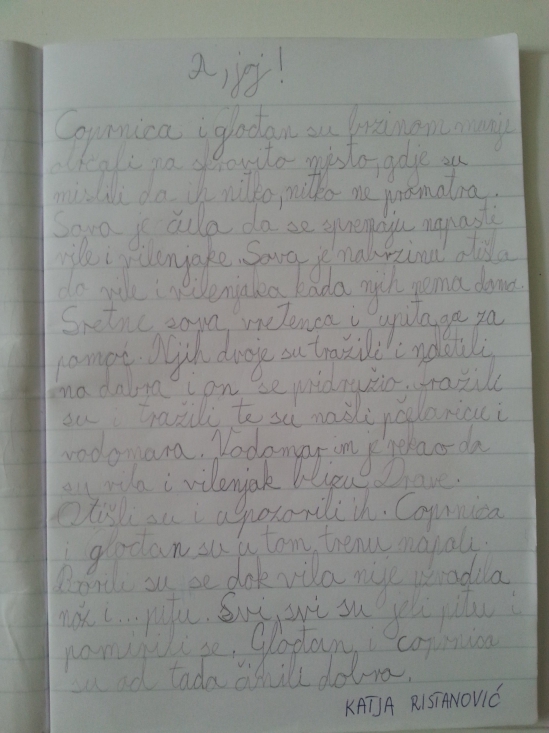 A, joj!
Coprnica i glođan su brzinom munje
otrčali na skrovito mjesto, gdje su
mislili da ih nitko, nitko ne promatra.
Sova je čula da se spremaju napasti
vile i vilenjake. Sova je nabrzinu otišla
do vile i vilenjaka kada njih nema doma.
Sretne sova vretenca i upita ga za
pomoć. Njih dvoje su tražili i naletili
na dabra i on se pridružio. Tražili
su i tražili, te su našli pčelaricu i
vodomara. Vodomar im je rekao da
su vila i vilenjak blizu Drave.
Otišli su i upozorili ih. Coprnica
i glođan su u tom trenu napali.
Borili su se dok vila nije izvadila
nož i... pitu. Svi, svi su jeli pitu i
pomirili se. Glođan i coprnica
su od tada činili dobra.
KATJA RISTANOVIĆ